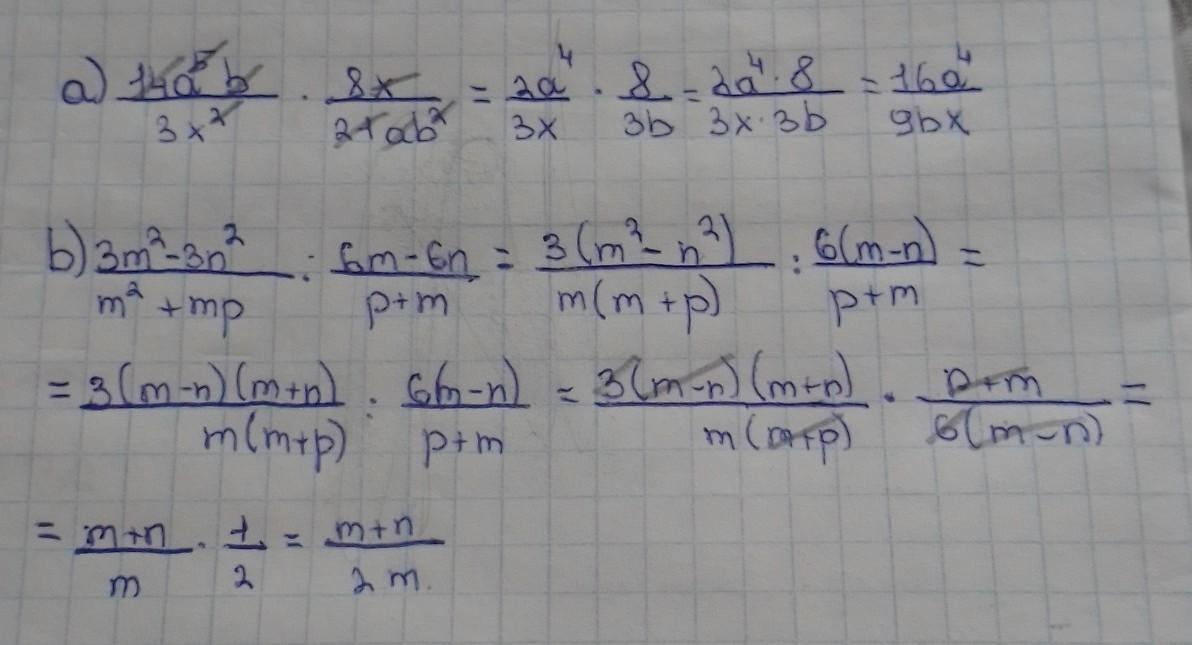 a) 14a⁵b/3x² · 8x/21ab² = 2a⁴/3x · 8/3b = 2a⁴·8/3x·3b = 16a⁴/9bx
b) 3m²-3n²/m²+mp : 6m-6n/p+m = 3(m²-n²)/m(m+p) : 6(m-n)/p+m =
= 3(m-n)(m+n)/m(m+p) : 6(m-n)/p+m = 3(m-n)(m+n)/m(m+p) · p+m/6(m-n) =
= m+n/m · 1/2 = m+n/2m.